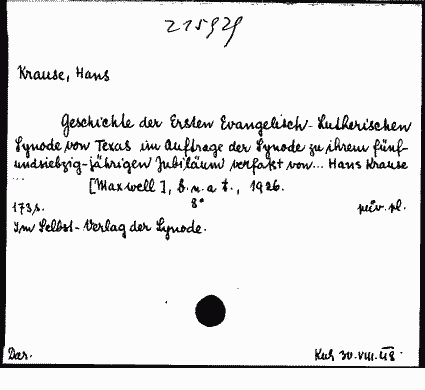 215929
Krause, Hans
Geschichte der Ersten Evangelisch-Lutherischen
Synode von Texas im Auftrage der Synode zu ihrem fünf-
undsiebzig-jährigen Jubiläum verfaßt von... Hans Krause
...
[Maxwell], b.n.a t., 1926.
173 s. 8° priv. pl.
Im Selbst-Verlag der Synode.
Dar. Kuh 30.VIII.48.